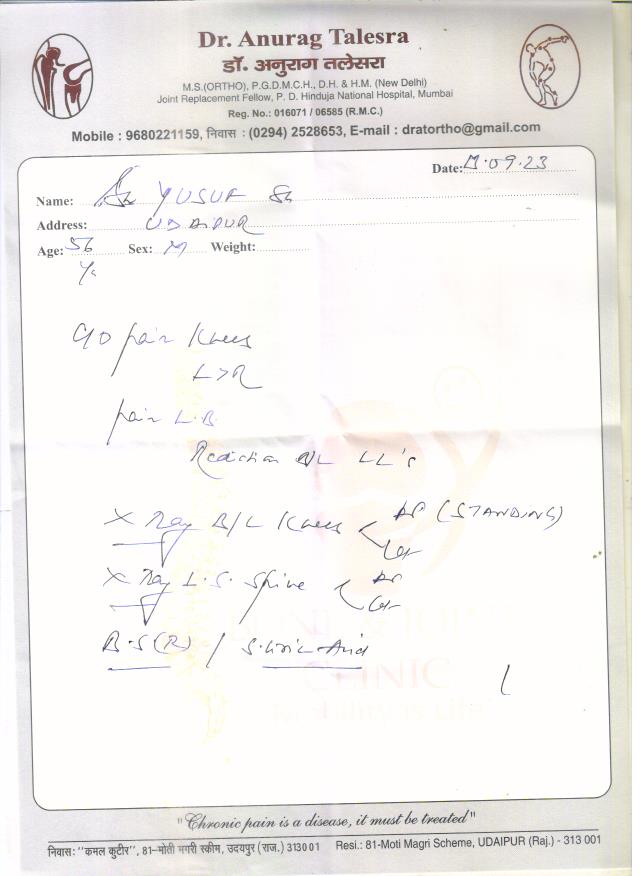 Dr. Anurag Talesra
डॉ. अनुराग तलेसरा
M.S.(ORTHO), P.G.D.M.C.H., D.H. & H.M. (New Delhi)
Joint Replacement Fellow, P. D. Hinduja National Hospital, Mumbai
Reg. No.: 016071 / 06585 (R.M.C.)
Mobile : 9680221159, निवास : (0294) 2528653, E-mail : dratortho@gmail.com
Date: .09.23
Name: YUSUF
Address: UDAIPUR
Age: 56 Sex: M Weight:
Yr
C/O pain Knees
L>R
pain L.B.
Radiation B/L LL's
X Ray B/L Knees AP (STANDING)
Lat
X Ray L.S. Spine AP
Lat
B.S(R) / S.Uric Acid
CLINIC
"Chronic pain is a disease, it must be treated"
निवास: "कमल कुटीर", 81-मोती मगरी स्कीम, उदयपुर (राज.) 313001 Resi.: 81-Moti Magri Scheme, UDAIPUR (Raj.) - 313 001